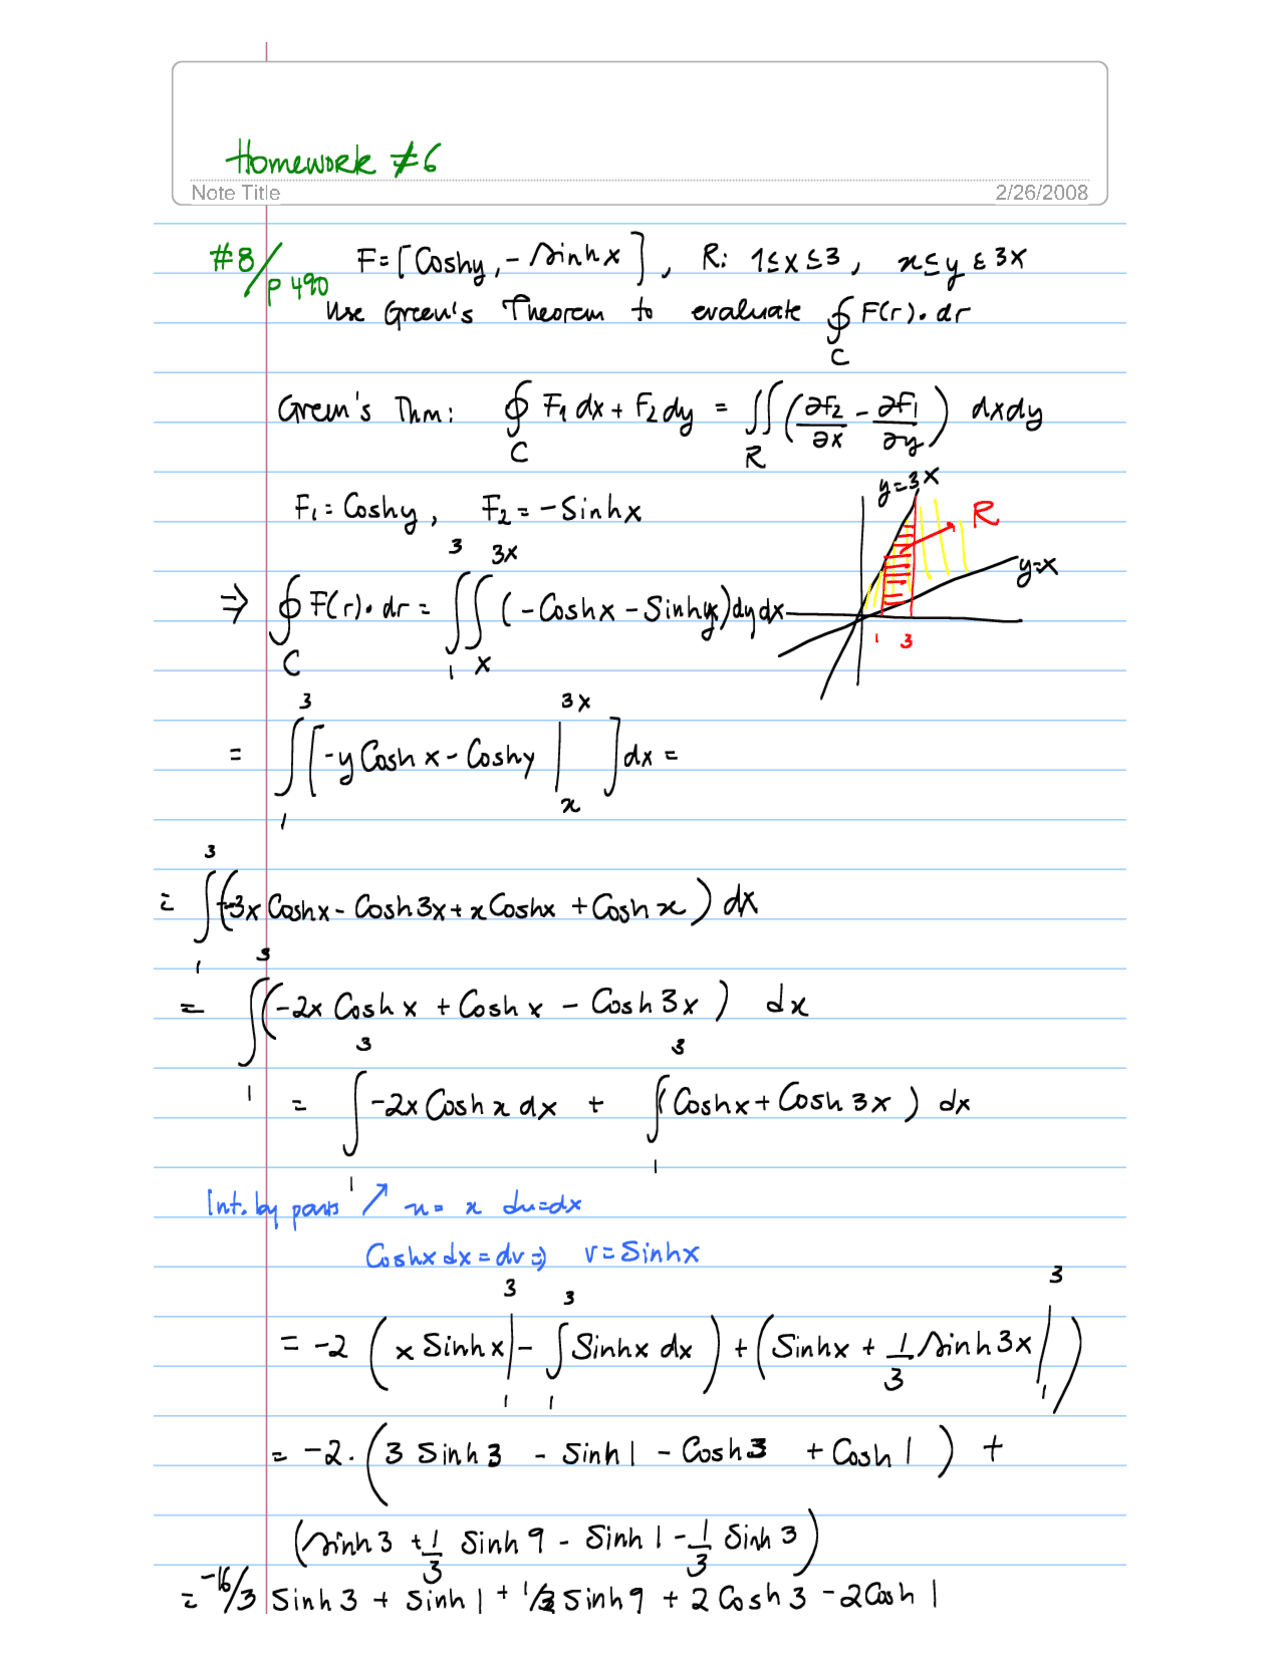 Homework #6
Note Title 2/26/2008
#8/p 490 F = [Coshy, -Sinhx], R: 1≤x≤3, x≤y≤3x
Use Green's Theorem to evaluate ∮_C F(r)•dr
Green's Thm: ∮_C F₁dx + F₂dy = ∬_R (∂F₂/∂x - ∂F₁/∂y) dxdy
y=3x
F₁ = Coshy, F₂ = -Sinhx
R
y=x
⇒ ∮_C F(r)•dr = ∫_1^3 ∫_x^3x (-Coshx - Sinhy)dydx
1 3
= ∫_1^3 [-y Coshx - Coshy |_x^3x ] dx =
= ∫_1^3 (-3x Coshx - Cosh3x + xCoshx + Coshx) dx
= ∫_1^3 (-2x Coshx + Coshx - Cosh3x) dx
= ∫_1^3 -2x Coshx dx + ∫_1^3 (Coshx + Cosh3x) dx
Int. by parts ↗ u = x du=dx
Coshx dx = dv ⇒ v = Sinhx
= -2 (x Sinhx |_1^3 - ∫_1^3 Sinhx dx) + (Sinhx + 1/3 Sinh3x |_1^3)
= -2. (3 Sinh3 - Sinh1 - Cosh3 + Cosh1) +
(Sinh3 + 1/3 Sinh9 - Sinh1 - 1/3 Sinh3)
= -16/3 Sinh3 + Sinh1 + 1/3 Sinh9 + 2Cosh3 - 2Cosh1